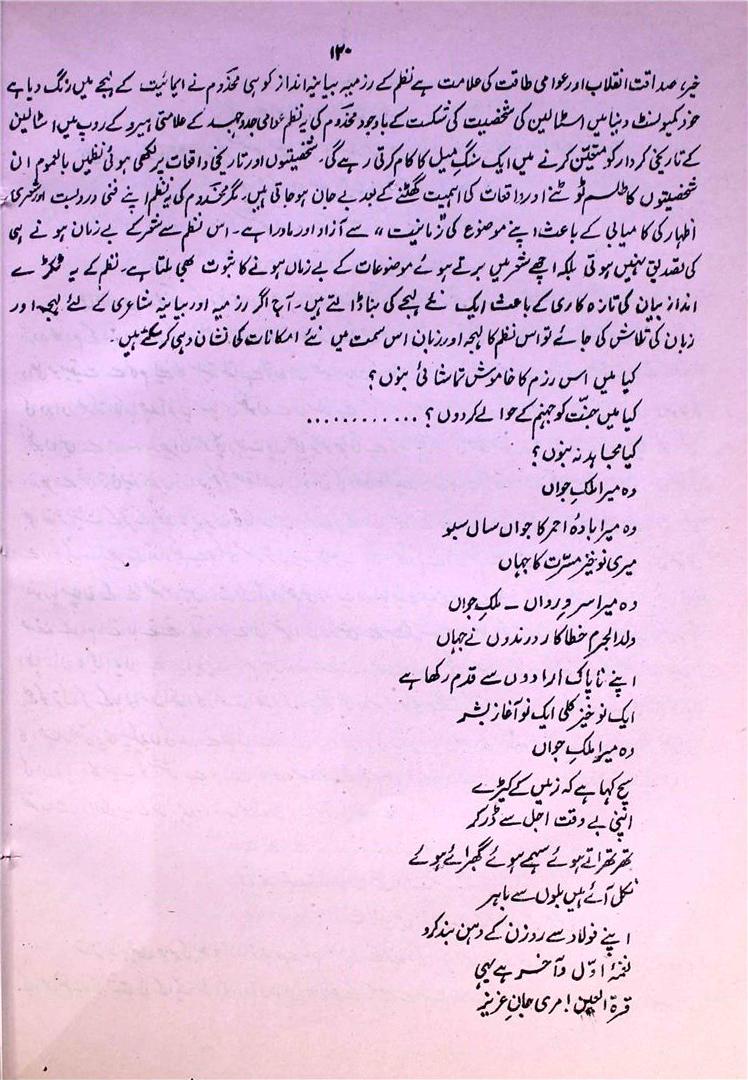 ۱۲۰
خیر، صداقت انقلاب اور عوامی طاقت کی علامت ہے نظم کے رزمیہ بیانیہ انداز کو سی مخدوم نے ایمائیت کے لہجے میں رنگ دیا ہے
خود کمیونسٹ دنیا میں اسٹالین کی شخصیت کی شکست کے باوجود مخدوم کی یہ نظم عوامی جدوجہد کے علامتی ہیرو کے روپ میں اسٹالین
کے تاریخی کردار کو متعین کرنے میں ایک سنگِ میل کا کام کرتی رہے گی۔ شخصیتوں اور تاریخی واقعات پر لکھی ہوئی نظمیں بالعموم ان
شخصیتوں کا طلسم ٹوٹنے اور واقعات کی اہمیت گھٹنے کے بعد بے جان ہو جاتی ہیں۔ مگر مخدوم کی یہ نظم اپنے فنی دروبست اور شعری
اظہار کی کامیابی کے باعث اپنے موضوع کی زمانیت،، سے آزاد اور ماورا ہے۔ اس نظم سے شعر کے بے زمان ہونے ہی
کی تصدیق نہیں ہوتی بلکہ اچھے شعر میں برتے ہوئے موضوعات کے بے زماں ہونے کا ثبوت بھی ملتا ہے۔ نظم کے یہ ٹکڑے
انداز بیان کی تازہ کاری کے باعث ایک نئے لہجے کی بنا ڈالتے ہیں۔ آج اگر رزمیہ اور بیانیہ شاعری کے لئے لہجہ اور
زبان کی تلاش کی جائے تو اس نظم کا لہجہ اور زبان اس سمت میں نئے امکانات کی نشان دہی کر سکتے ہیں۔
کیا میں اس رزم کا خاموش تماشائی بنوں؟
کیا میں جنت کو جہنم کے حوالے کر دوں؟ ............
کیا مجاہد نہ بنوں؟
وہ میرا ملکِ جواں
وہ میرا بادۂ احمر کا جواں سال سبو
میری نوخیز مسرت کا جہاں
وہ میرا سروِ رواں ــ ملکِ جواں
ولدالجرم خطاکار درندوں نے جہاں
اپنے ناپاک ارادوں سے قدم رکھا ہے
ایک نوخیز کلی ایک نو آغاز بشر
وہ میرا ملکِ جواں
سچ کہا ہے کہ زمیں کے کیڑے
اپنی بے وقت اجل سے ڈر کر
تھرتھراتے ہوئے سہمے ہوئے گھبرائے ہوئے
نکل آئے ہیں بلوں سے باہر
اپنے فولاد سے روزن کے دہن بند کرو
نغمۂ اوّل و آخر ہے یہی
قرۃ العین! مری جانِ عزیز